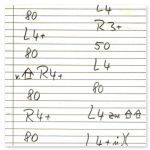 80
L4+
80
v. R4+
80
R4+
80
L4
R3+
50
L4
80
L4 zu
L4+iX